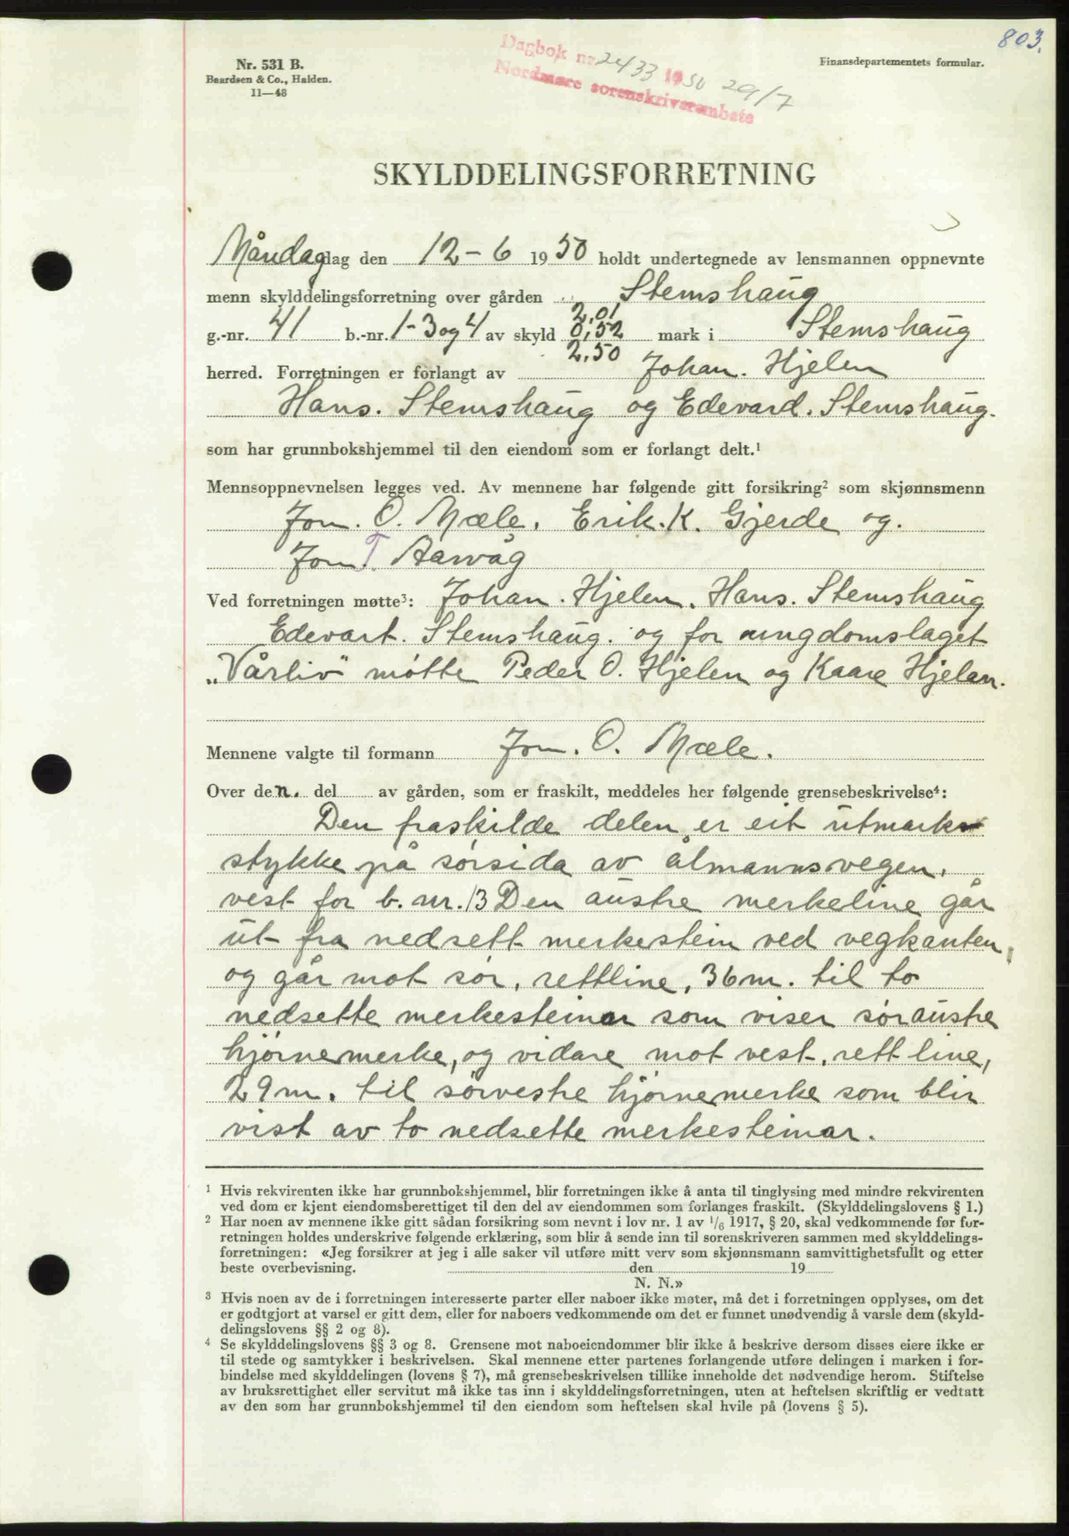 803.
Nr. 531 B.
Baardsen & Co., Halden.
11—48
Dagbok nr. 2433 1950 29/7
Nordmøre sorenskriverembete
Finansdepartementets formular.
SKYLDDELINGSFORRETNING
Måndag dag den 12-6 1950 holdt undertegnede av lensmannen oppnevnte
menn skylddelingsforretning over gården Stemshaug
2,01
g.-nr. 41 b.-nr. 1-3 og 4 av skyld 0,52 mark i Stemshaug
2,50
herred. Forretningen er forlangt av Johan. Hjelen
Hans. Stemshaug og Edevard. Stemshaug.
som har grunnbokshjemmel til den eiendom som er forlangt delt.¹
Mennsoppnevnelsen legges ved. Av mennene har følgende gitt forsikring² som skjønnsmenn
Jon. O. Mæle, Erik. K. Gjerde og.
Jon T. Aarvåg
Ved forretningen møtte³: Johan. Hjelen, Hans. Stemshaug
Edevart. Stemshaug. og for ungdomslaget
„Vårliv" møtte Peder O. Hjelen og Kaare Hjelen.
Mennene valgte til formann Jon. O. Mæle.
Over den. del av gården, som er fraskilt, meddeles her følgende grensebeskrivelse⁴:
Den fraskilde delen er eit utmark-
stykke på sørsida av ålmannsvegen,
vest for b. nr. 13 Den austre merkeline går
ut fra nedsett merkestein ved vegkanten,
og går mot sør, rettline, 36 m. til to
nedsette merkesteinar som viser søraustre
hjørnemerke, og vidare mot vest, rett line,
29 m. til sørvestre hjørnemerke som blir
vist av to nedsette merkesteinar.
¹ Hvis rekvirenten ikke har grunnbokshjemmel, blir forretningen ikke å anta til tinglysing med mindre rekvirenten
ved dom er kjent eiendomsberettiget til den del av eiendommen som forlanges fraskilt. (Skylddelingslovens § 1.)
² Har noen av mennene ikke gitt sådan forsikring som nevnt i lov nr. 1 av ¹/₆ 1917, § 20, skal vedkommende før for-
retningen holdes underskrive følgende erklæring, som blir å sende inn til sorenskriveren sammen med skylddelings-
forretningen: «Jeg forsikrer at jeg i alle saker vil utføre mitt verv som skjønnsmann samvittighetsfullt og etter
beste overbevisning. den 19
N. N.»
³ Hvis noen av de i forretningen interesserte parter eller naboer ikke møter, må det i forretningen opplyses, om det
er godtgjort at varsel er gitt dem, eller for naboers vedkommende om det er funnet unødvendig å varsle dem (skyld-
delingslovens §§ 2 og 8).
⁴ Se skylddelingslovens §§ 3 og 8. Grensene mot naboeiendommer blir ikke å beskrive dersom disses eiere ikke er
til stede og samtykker i beskrivelsen. Skal mennene etter partenes forlangende utføre delingen i marken i for-
bindelse med skylddelingen (lovens § 7), må grensebeskrivelsen tillike inneholde det nødvendige herom. Stiftelse
av bruksrettighet eller servitut må ikke tas inn i skylddelingsforretningen, uten at heftelsen skriftlig er vedtatt
av den som har grunnbokshjemmel til den eiendom som heftelsen skal hvile på (lovens § 5).